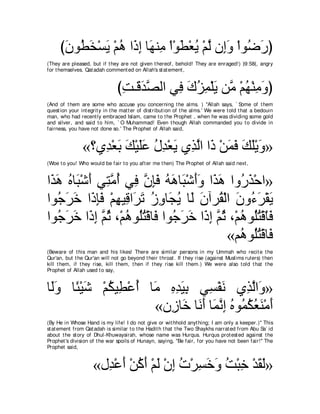 (رَضُوا۟ وَإِن لَّمْ يُعْطَوْا۟ مِنهَا إِذَا هُمْ يَسْخَطُونَ)
(They are pleased, but if they are not given thereof, behold! They are enraged!) (9:58), angry
for themselves. Qatadah commented on Allah's statement,
(وَمِنْهُمْ مَّن يَلْمِزُكَ فِي الصَّدَقَـتِ)
(And of them are some who accuse you concerning the alms. ) "Allah says, ` Some of them
question your integrity in the matter of distribution of the alms.' We were told that a bedouin
man, who had recently embraced Islam, came to the Prophet , when he was dividing some gold
and silver, and said to him, ` O Muhammad! Even though Allah commanded you to divide in
fairness, you have not done so.' The Prophet of Allah said,
«وَيْلَكَ فَمَنْ ذَا الَّذِي يَعْدِلُ عَلَيْكَ بَعْدِي؟»
(Woe to you! Who would be fair to you after me then) The Prophet of Allah said next,
«احْذَرُوا هَذَا وَأَشْبَاهَهُ فَإِنَّ فِي أُمَّتِي أَشْبَاهُ هَذَا
يَقْرَءُونَ الْقُرْآنَ لَا يُجَاوِزُ تَرَاقِيَهُمْ فَإِذَا خَرَجُوا
فَاقْتُلُوهُمْ، ثُمَّ إِذَا خَرَجُوا فَاقْتُلُوهُمْ، ثُمَّ إِذَا خَرَجُوا
فَاقْتُلُوهُم»
(Beware of this man and his likes! There are similar persons in my Ummah who recite the
Qur'an, but the Qur'an will not go beyond their throat. If they rise (against Muslims rulers) then
kill them, if they rise, kill them, then if they rise kill them.) We were also told that the
Prophet of Allah used to say,
«وَالَّذِي نَفْسِي بِيَدِهِ مَا أُعْطِيكُمْ شَيْئًا وَلَا
أَمْنَعُكُمُوهُ إِنَّمَا أَنَا خَازِن»
(By He in Whose Hand is my life! I do not give or withhold anything; I am only a keeper.)" This
statement from Qatadah is similar to the Hadith that the Two Shaykhs narrated from Abu Sa`id
about the story of Dhul-Khuwaysirah, whose name was Hurqus. Hurqus protested against the
Prophet's division of the war spoils of Hunayn, saying, "Be fair, for you have not been fair!" The
Prophet said,
«لَقَدْ خِبْتُ وَخَسِرْتُ إِنْ لَمْ أَكُنْ أَعْدِل»